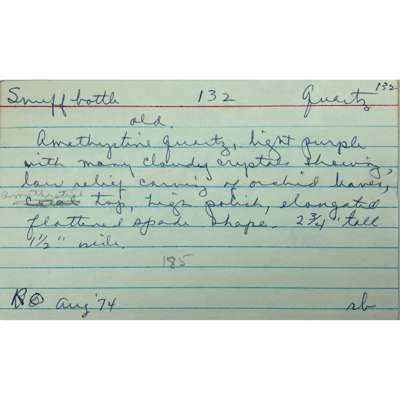 132
Snuff bottle 132 Quartz
old.
Amethystine quartz, light purple
with many cloudy crystals showing,
low relief carving of orchid leaves,
amethystine
coral top, high polish, elongated
flattened spade shape. 2 3/4" tall
1 1/2" wide.
185
Aug '74 rb